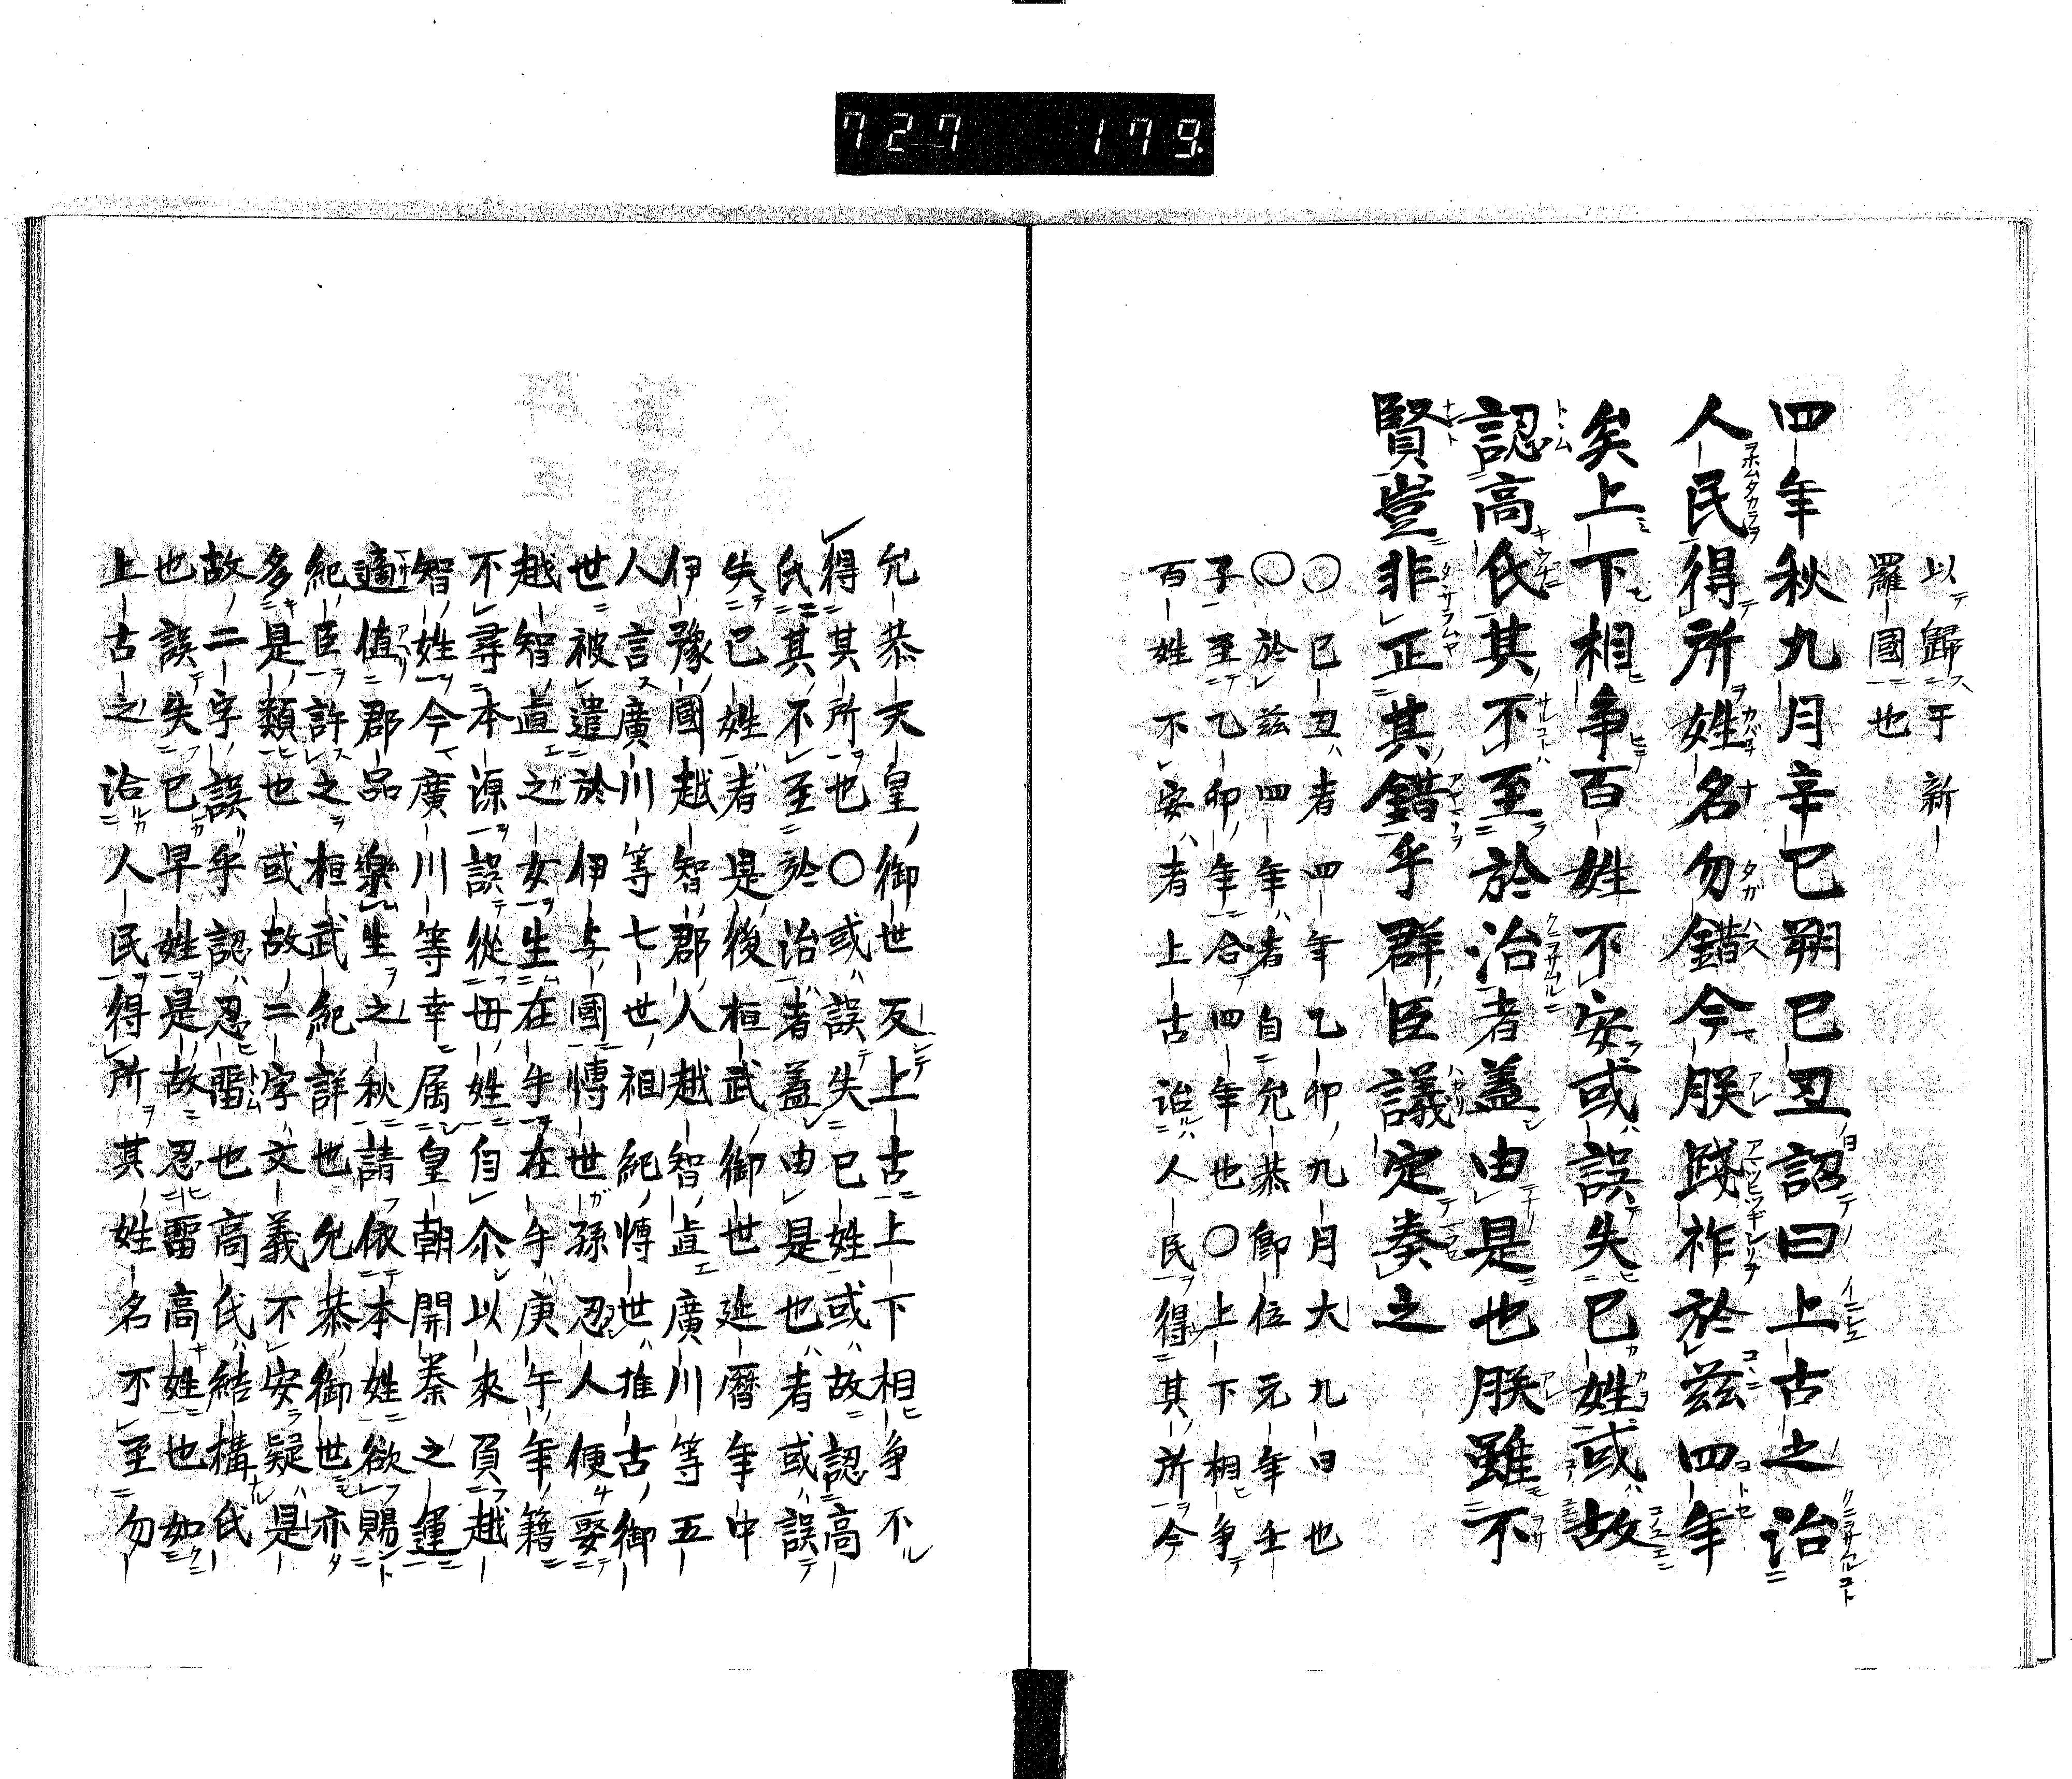 727 179
以歸于新
羅國也
四年秋九月辛巳朔己丑詔曰上古之治
人民得所姓名勿錯今朕踐祚於茲四年
矣上下相爭百姓不安或誤失己姓或故
認高氏其不至於治者蓋由是也朕雖不
賢豈非正其錯乎群臣議定奏之
〇己丑者四年乙卯九月大九日也
〇於茲四年者自允恭即位元年壬
子至乙卯年合四年也〇上下相爭
百姓不安者上古治人民得其所今
允恭天皇御世反上古上下相爭不
得其所也〇或誤失己姓或故認高
氏其不至於治者蓋由是也者或誤
失己姓者是後桓武御世延曆年中
伊豫國越智郡人越智直廣川等五
人言廣川等七世祖紀博世推古御
世被遣於伊与國博世孫忍人便娶
越智直之女生在手在手庚午年籍
不尋本源誤從母姓自尒以來負越
智姓今廣川等幸属皇朝開泰之運
適值郡品樂生之秋請依本姓欲賜
紀臣許之桓武紀詳也允恭御世亦
多是類也或故二字文義不安疑是
故二字誤乎認忍畱也高氏結構氏
也誤失己早姓是故忍畱高姓也如
上古之治人民得所其姓名不至勿